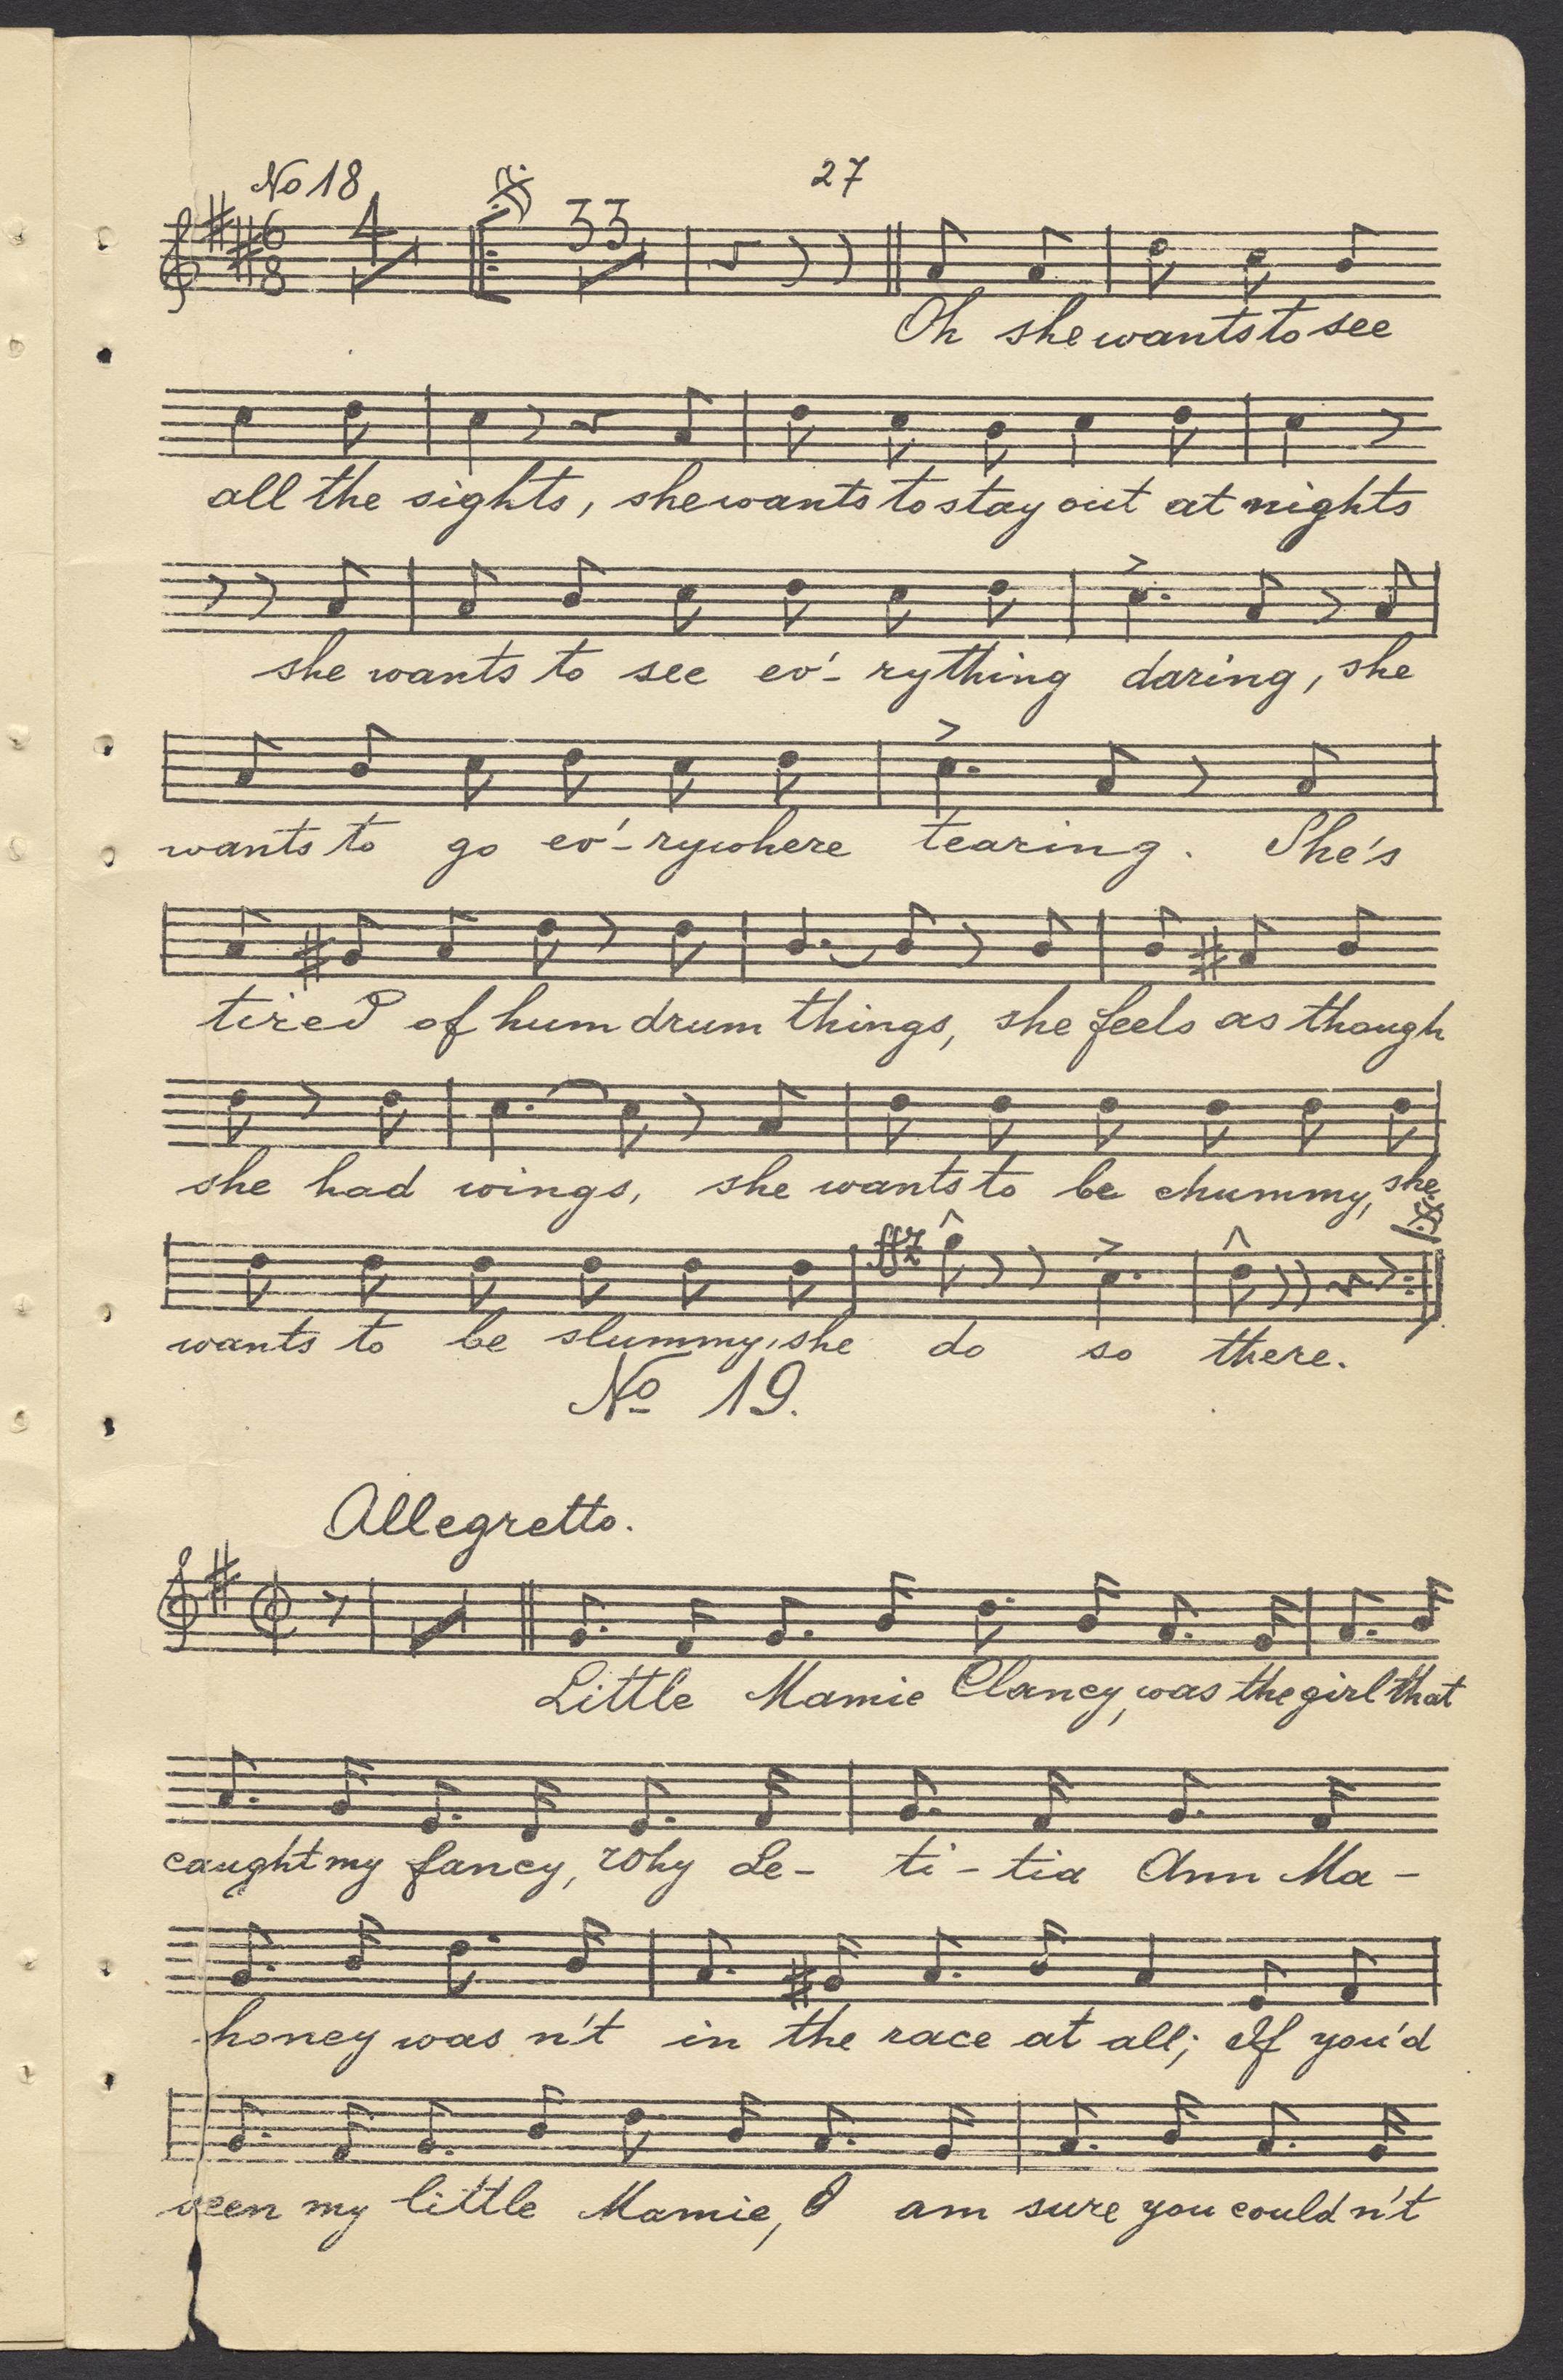 No 18
27
6
8
4
33
Oh she wants to see
all the sights, she wants to stay out at nights
she wants to see ev'-rything daring, she
wants to go ev'-rywhere tearing. She's
tired of hum drum things, she feels as though
she had wings, she wants to be chummy, she
ffz
wants to be slummy, she do so there.
No 19.
Allegretto.
Little Mamie Clancy, was the girl that
caught my fancy, why Le- ti-tia Ann Ma-
honey was n't in the race at all; If you'd
seen my little Mamie, I am sure you could n't